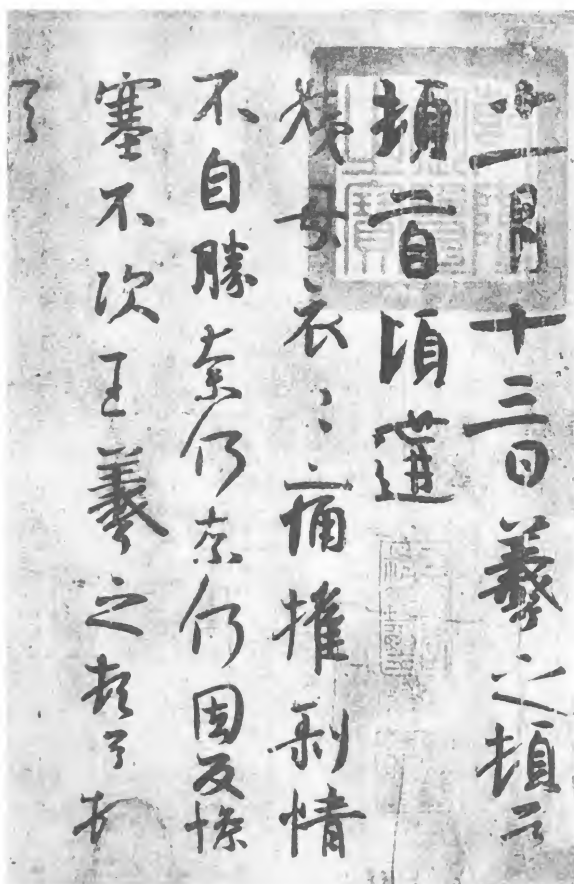 十一月十三日羲之頓首
頓首頃遘
姨母哀〻痛摧剥情
不自勝奈何奈何因反慘
塞不次王羲之頓首頓
首